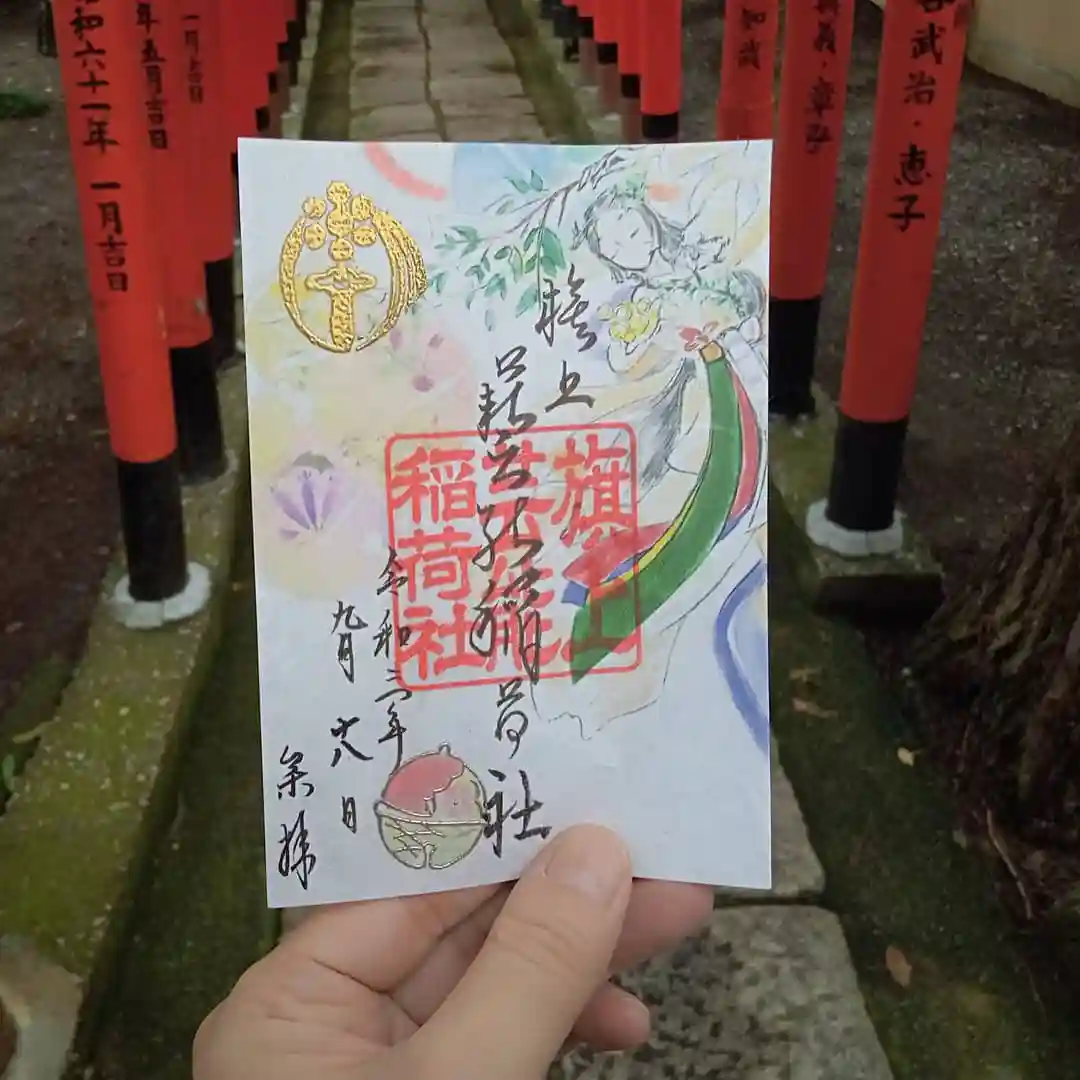 和六十一年 一月吉日
年五月吉日
一月吉日
武治・恵子
旗上
芸能
稲荷社
旗上
藝能稲荷社
令和二年
九月十八日
奉拝